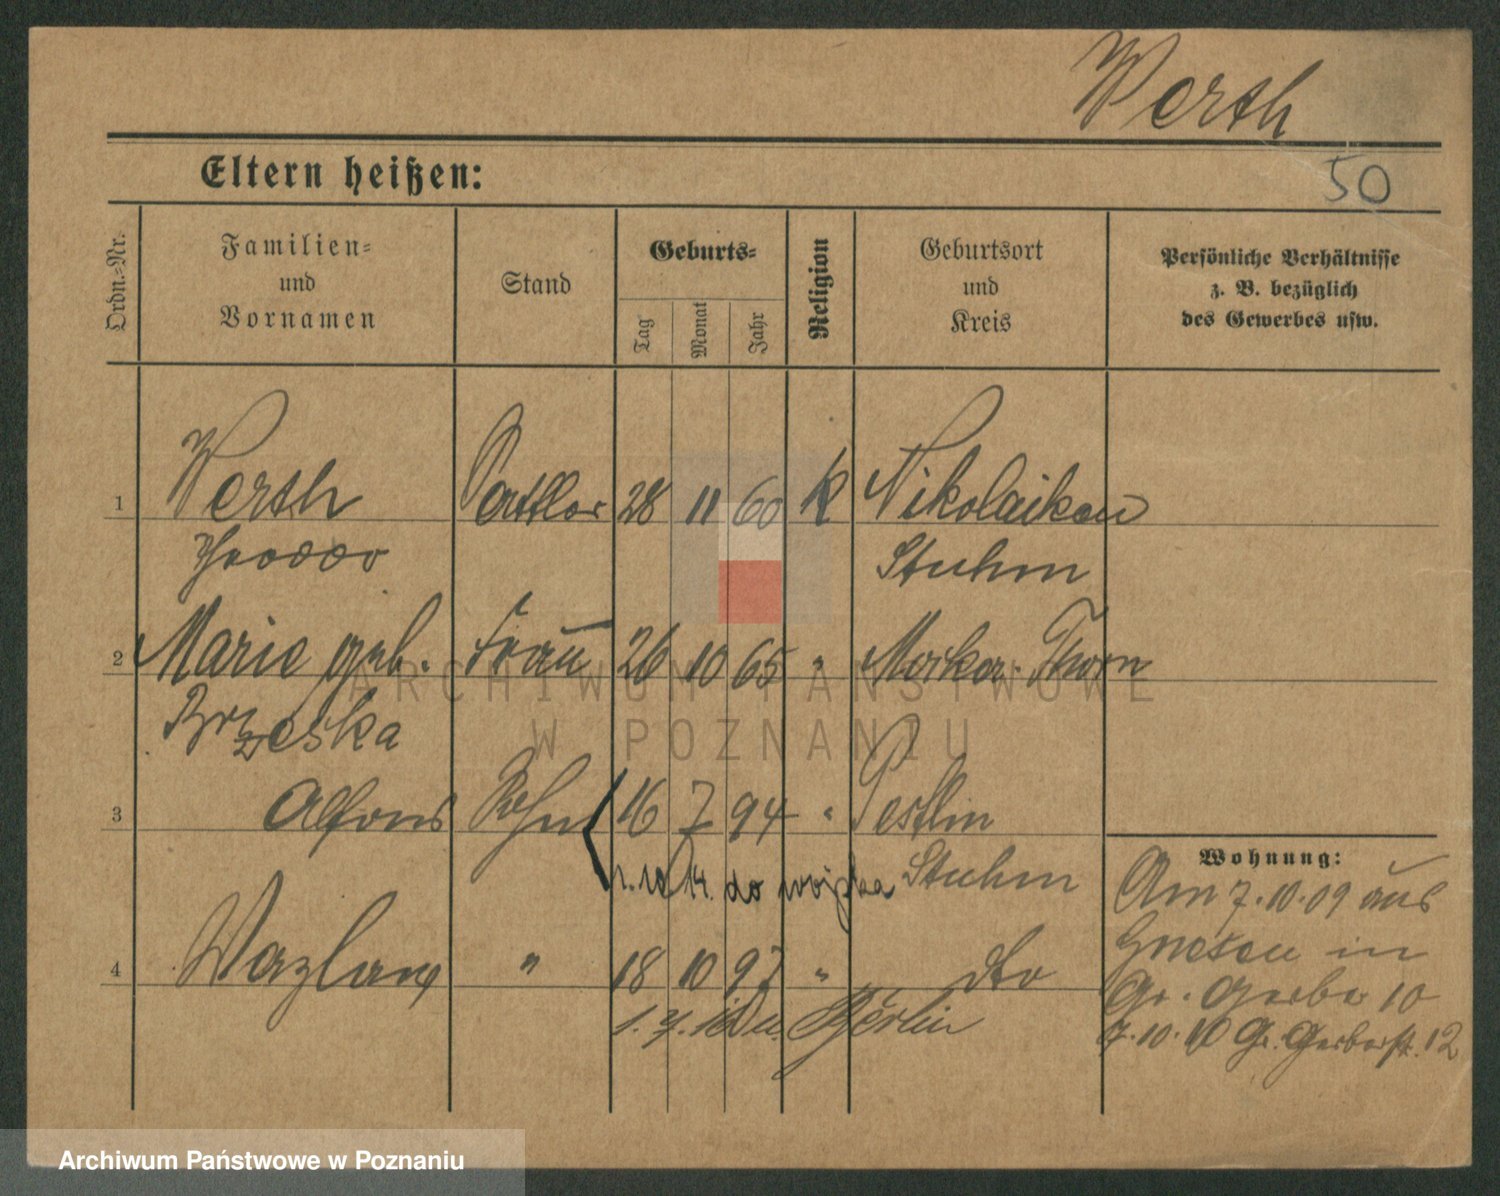 Werth
50
Eltern heißen:
Ordn.-Nr.
Familien-
und
Vornamen
Stand
Geburts-
Tag
Monat
Jahr
Religion
Geburtsort
und
Kreis
Persönliche Verhältnisse
z. B. bezüglich
des Gewerbes usw.
1 Werth Sattler 28 11 60 K Nikolaiken
Theodor Stuhm
2 Marie geb. Frau 26 10 65 " Mocker Thorn
Brzeska
3 Alfons Sohn 16 7 94 " Pestlin
10 14. do wojska Stuhm
4 Wazlaw " 18 10 97 " dto
Berlin
Wohnung:
Am 7.10.09 aus
Gnesen in
Gr. Gerber 10
7.10.10 Gr. Gerberstr. 12
ARCHIWUM PAŃSTWOWE
W POZNANIU
Archiwum Państwowe w Poznaniu